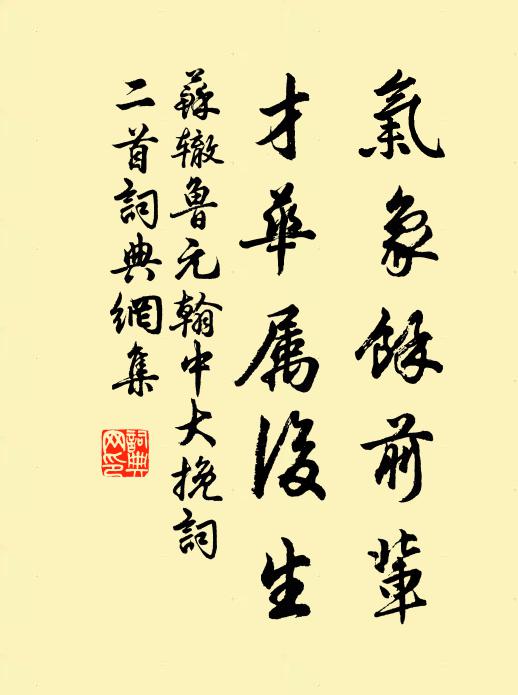 氣象餘前輩
才華属後生
蘇辙魯元翰中大挽詞
二首詞典網集
詞典网印